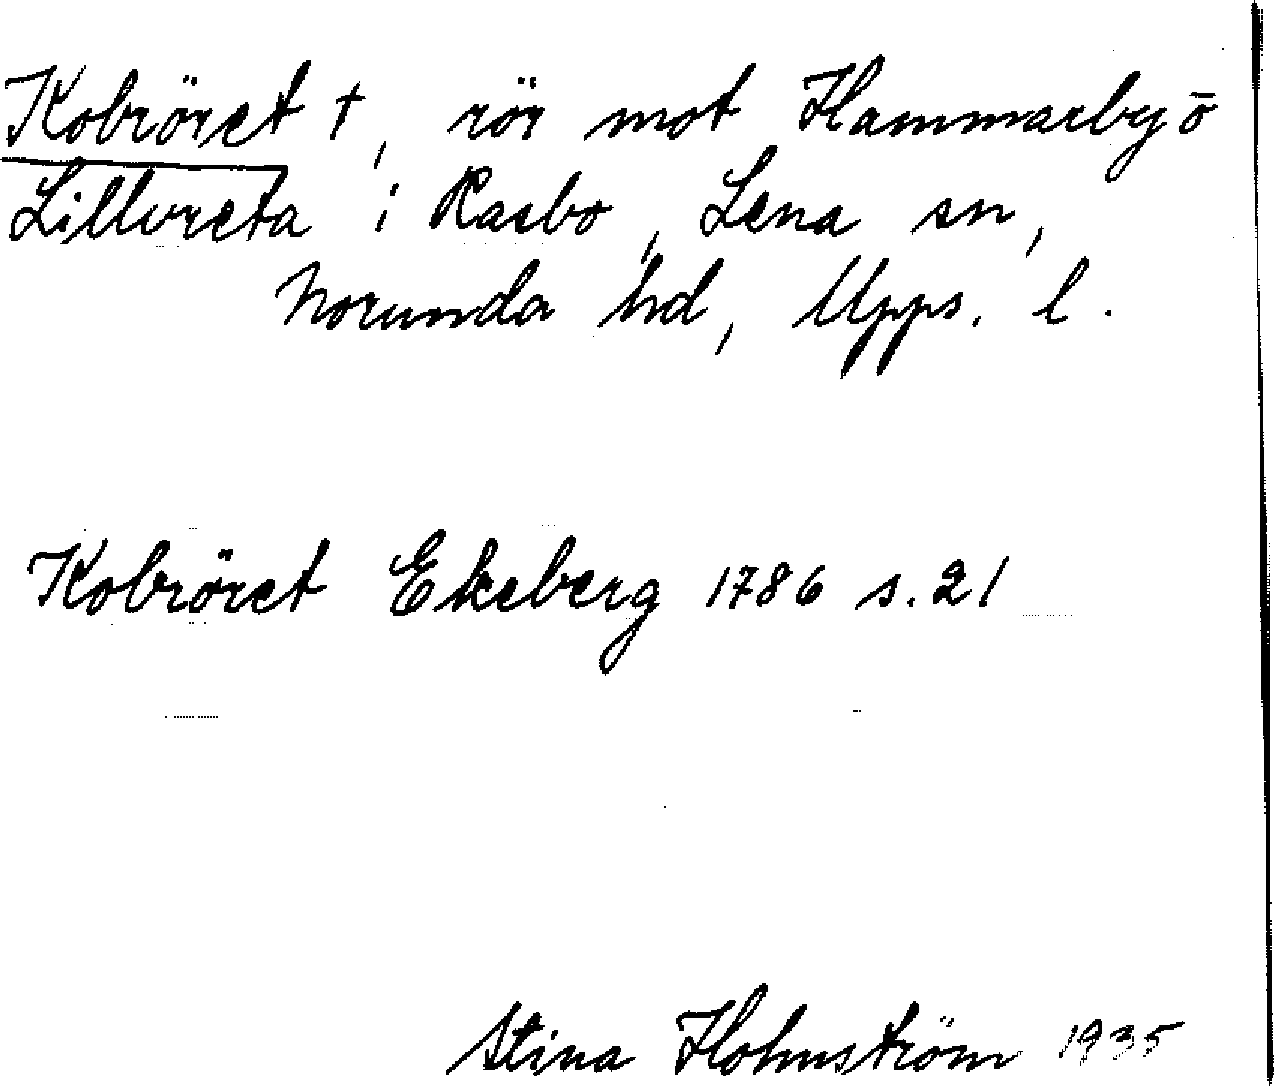 Kobröret †, rör mot Hammarby o
Lillvreta i Rasbo, Lena sn,
Norunda hd, Upps. l.
Kobröret Ekeberg 1786 s. 21
Stina Holmström 1935